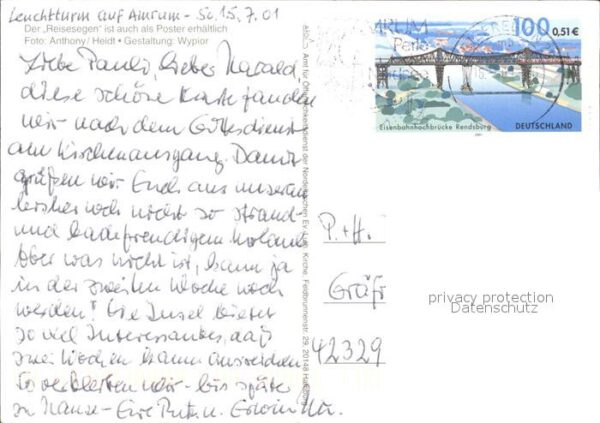 Leuchtturm auf Amrum - So 15.7.01
Der „Reisesegen" ist auch als Poster erhältlich
Foto: Anthony / Heidt • Gestaltung: Wypior
Liebe Pauli, lieber Harald,
diese schöne Karte fanden
wir nach dem Gottesdienst
am Kirchenausgang. Damit
grüßen wir Euch aus unserem
bisher noch nicht so strand-
und badefreudigem Urlaub
Aber was nicht ist, kann ja
in der zweiten Woche noch
werden! Die Insel bietet
so viel Interessantes, daß
zwei Wochen kaum ausreichen
So verbleiben wir - bis später
zu Hause - Eure Ruth u. Erwin
Amt für Öffentlichkeitsdienst der Nordelbischen Ev.-Luth. Kirche, Feldbrunnenstr. 29, 20148 Hamburg
100
0,51 €
Eisenbahnhochbrücke Rendsburg
DEUTSCHLAND
P. + H.
Gräfr
42329
privacy protection
Datenschutz